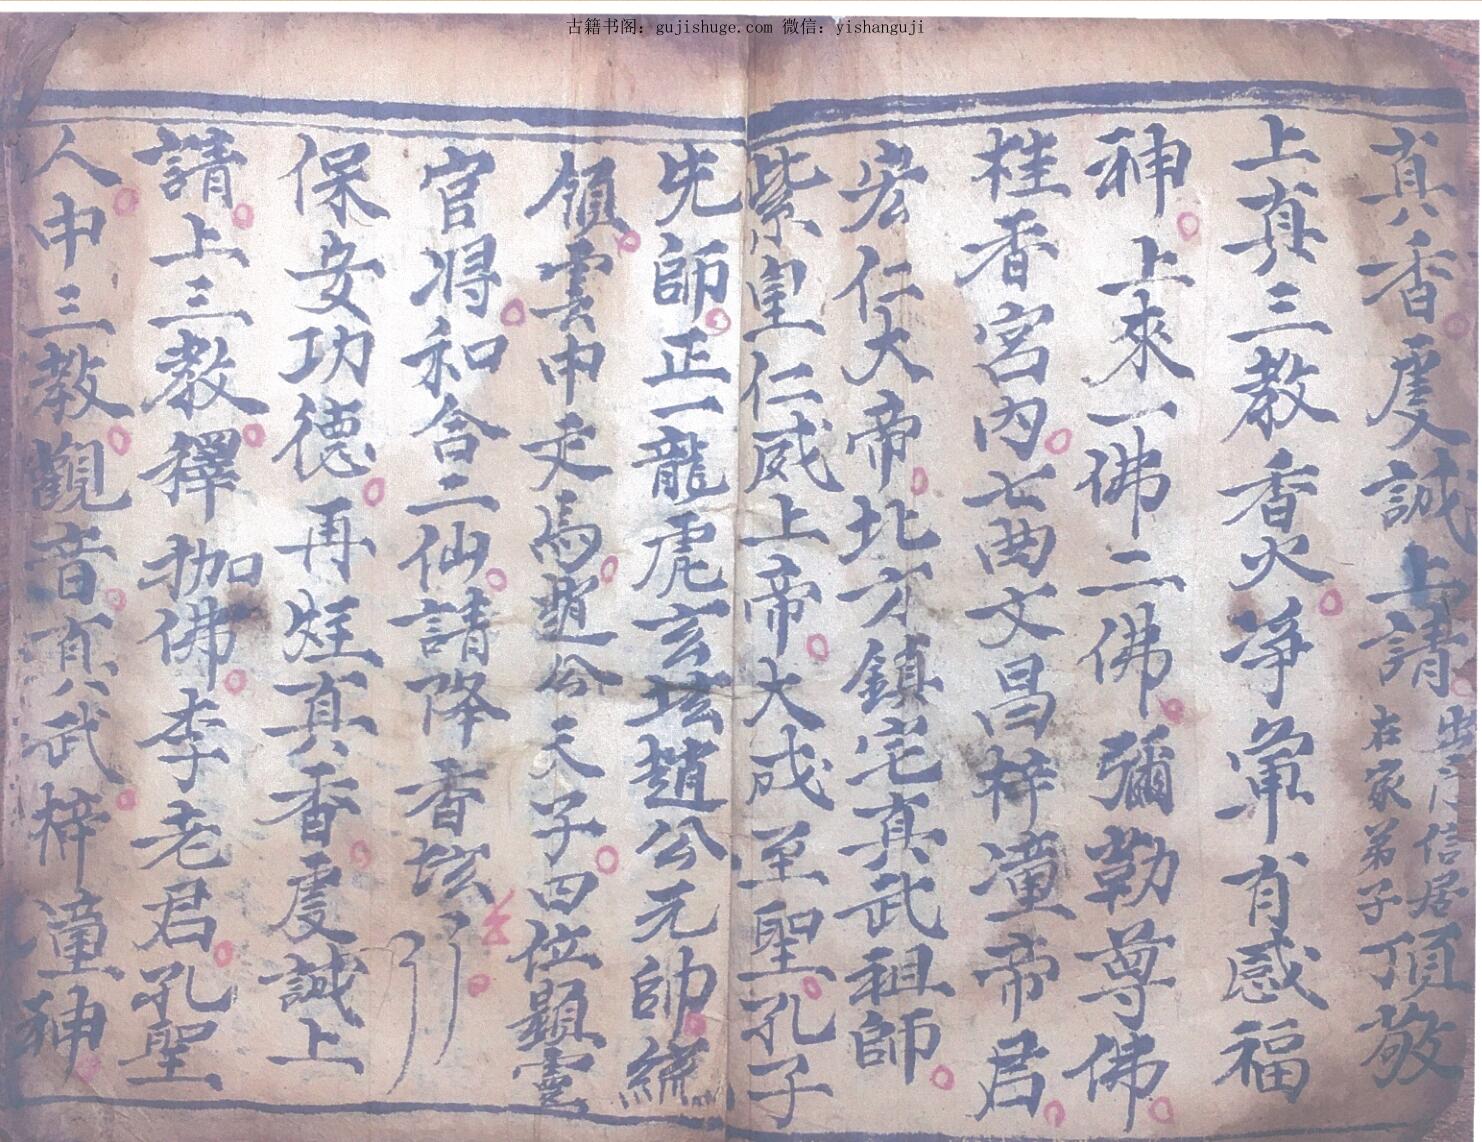 古籍书阁：gujishuge.com 微信：yishanguji
真香虔誠上請出門信居在家弟子頂敬
上真三教香火淨筆有感福
神上來一佛二佛彌勒尊佛
桂香宮內七曲文昌梓潼帝君
宏仁大帝北方鎮宅真武祖師
紫皇仁威上帝大成至聖孔子
先師正一龍虎玄坛趙公元帥統
領雲中走馬趙公天子四位顯靈
官将和合二仙請降香坛
保安功德再炷真香虔誠上
請上三教釋拁佛李老君孔聖
人中三教觀音真武梓潼神